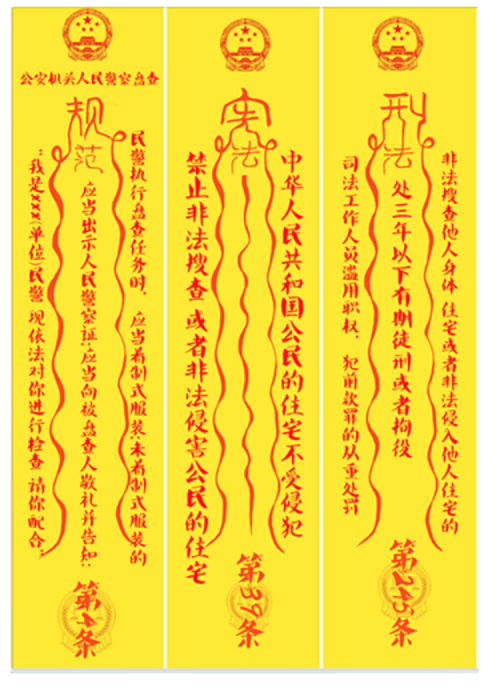 公安机关人民警察盘查
规范
民警执行盘查任务时，应当着制式服装；未着制式服装的
应当出示人民警察证；应当向被盘查人敬礼并告知：
“我是×××(单位)民警 现依法对你进行检查 请你配合。”
第4条
宪法
中华人民共和国公民的住宅不受侵犯
禁止非法搜查 或者非法侵害公民的住宅
第39条
刑法
非法搜查他人身体 住宅或者非法侵入他人住宅的
处三年以下有期徒刑或者拘役
司法工作人员滥用职权，犯前款罪的从重处罚
第245条